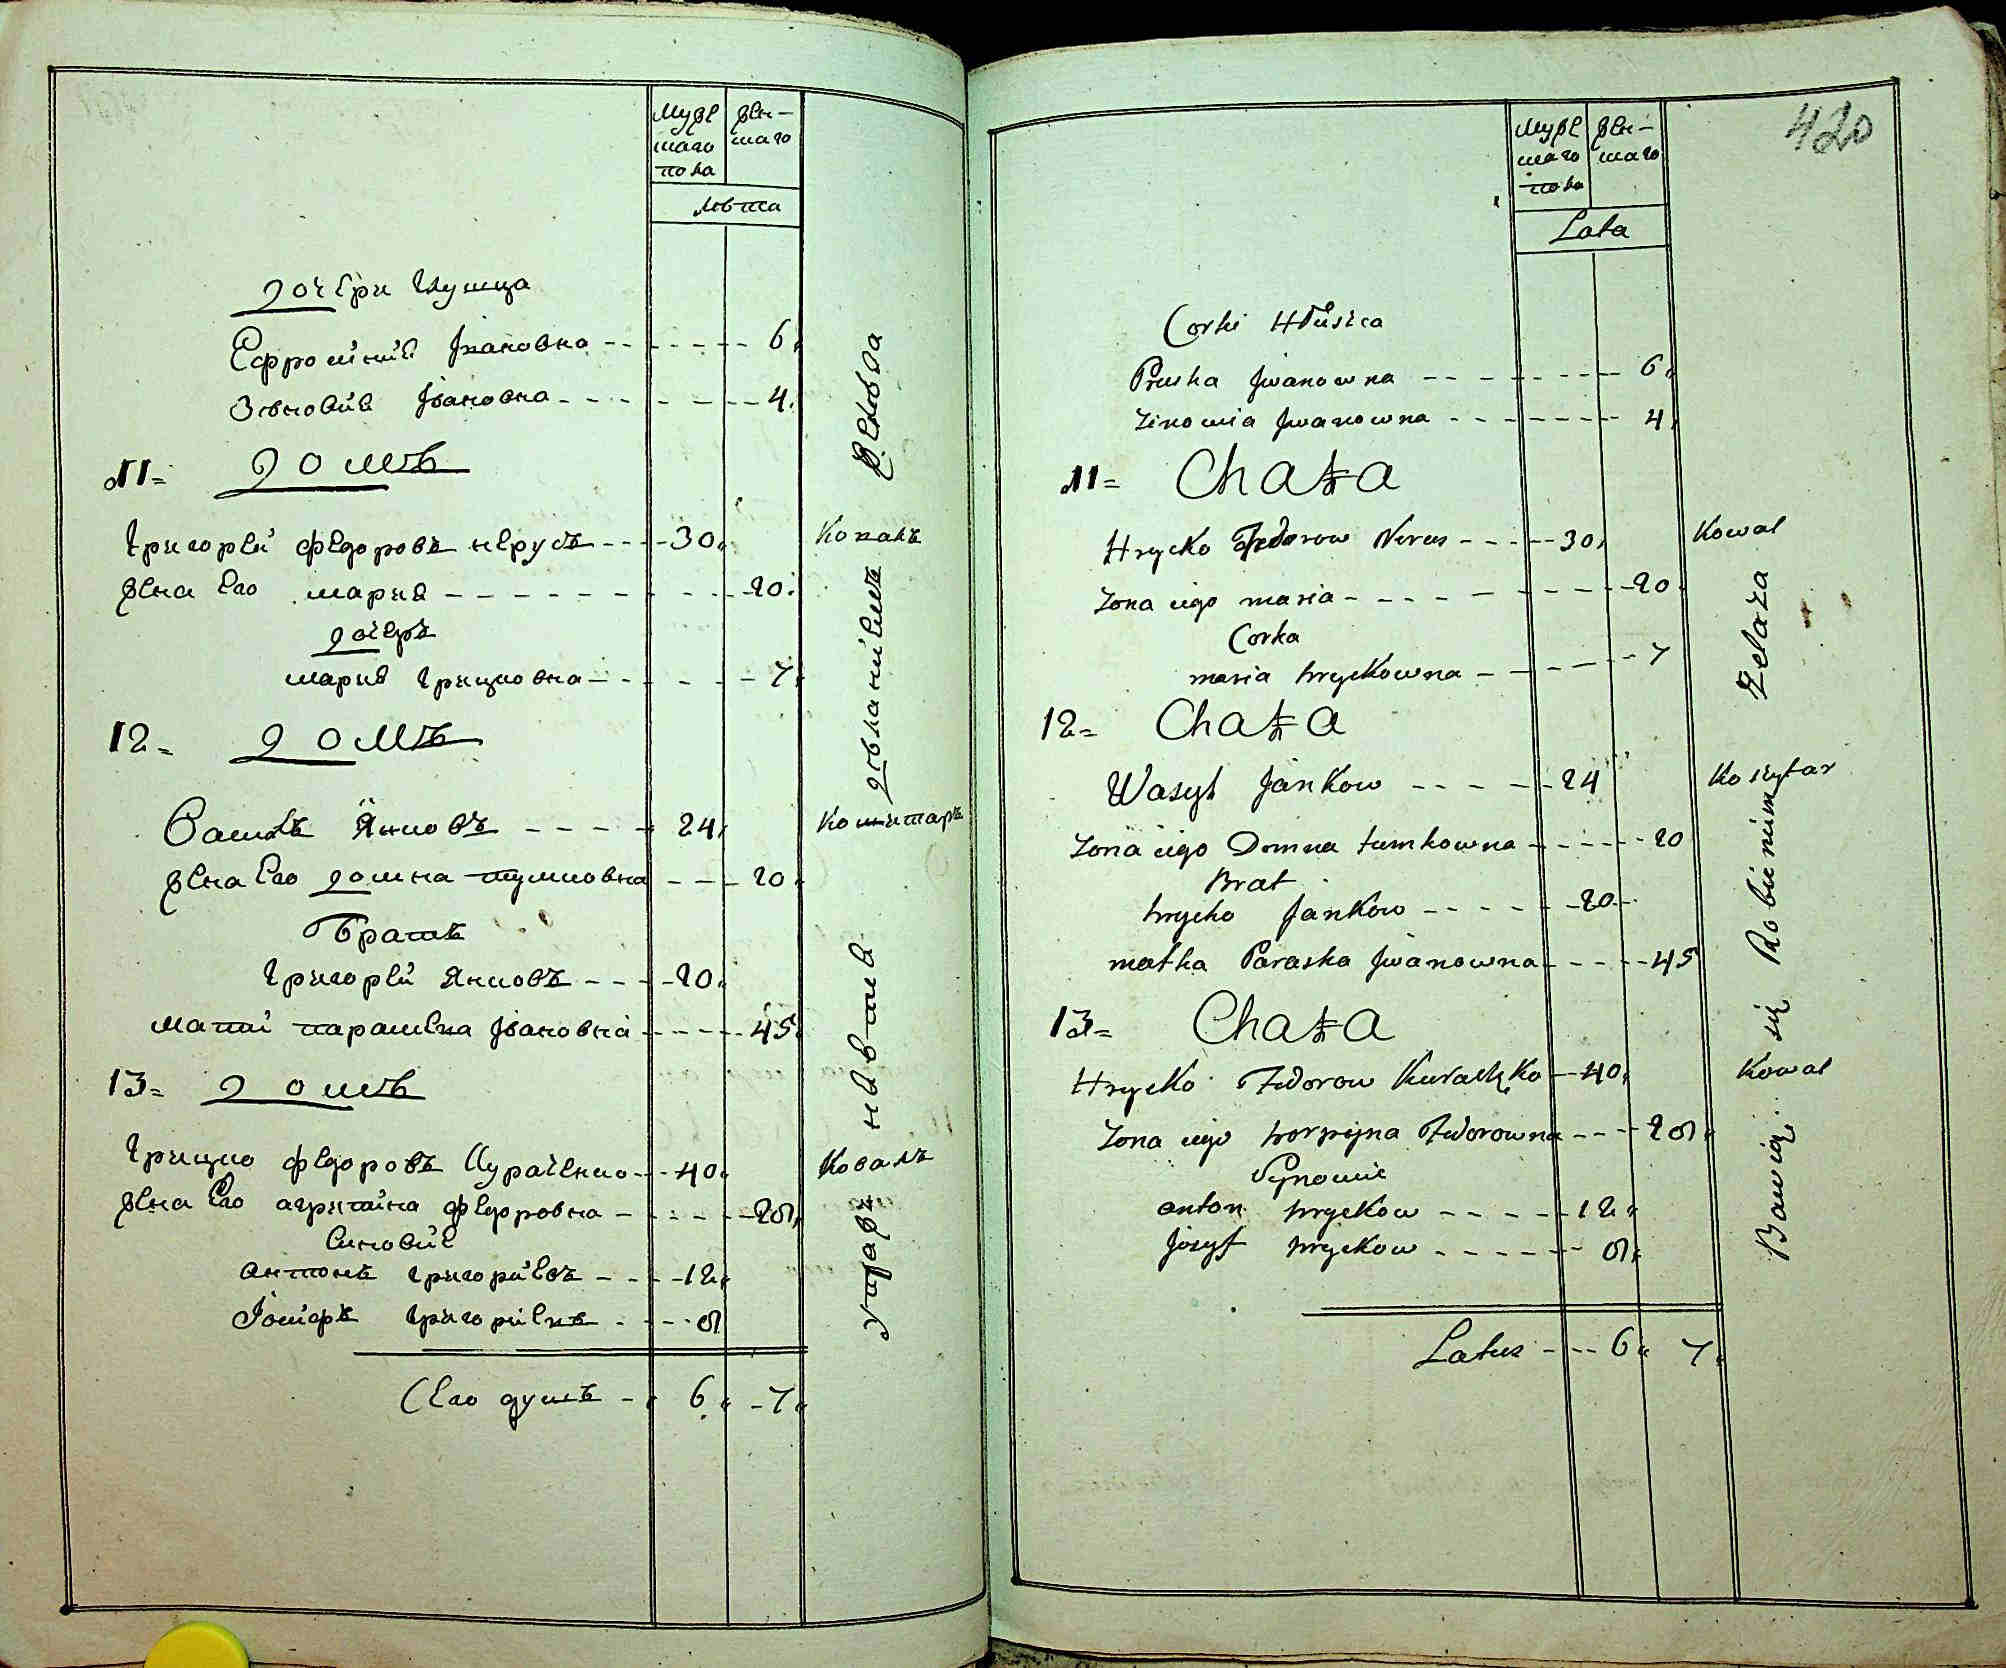 Муже жен-
шаго шаго
пола
лѣта
дочери Глушца
Ефросинiя Iвановна 6
Зѣновiя Iвановна 4
11= Домъ
Григорей Федоровъ Нерусъ 30 Коваль
жена Его Марiя 20
дочерь
Марiя Грицковна 7
12= Домъ
Василь Янковъ 24 Кошитаръ
жена Его Домна Тумковна 20
Братъ
Григорей Янковъ 20
Мати Парасевка Iвановна 45
13= Домъ
Грицко Федоровъ Кураченко 40 Коваль
жена Его Агрипина Федоровна 28
Синовiе
Антонъ Григорiевъ 12
Iосифъ Григорiевъ 8
Сего душъ 6 7
дѣланiемъ
420
Муже жен-
шаго шаго
пола
Lata
Corki Hłusica
Pruska Jwanowna 6
Zinowia Jwanowna 4
11= Chata
Hrycko Fedorow Nerus 30 Kowal
Zona iego maria 20
Corka
maria hryckowna 7
12= Chata
Wasyl Jankow 24 Koszytar
Zona iego Domna tumkowna 20
Brat
hrycko Jankow 20
matka Paraska Jwanowna 45
13= Chata
Hrycko Fedorow Kuraczko 40 Kowal
Zona iego horpyna Fedorowna 28
Synowie
anton hryckow 12
Jozyf hryckow 8
Latus 6 7
Bawią się Robieniim Zelaza